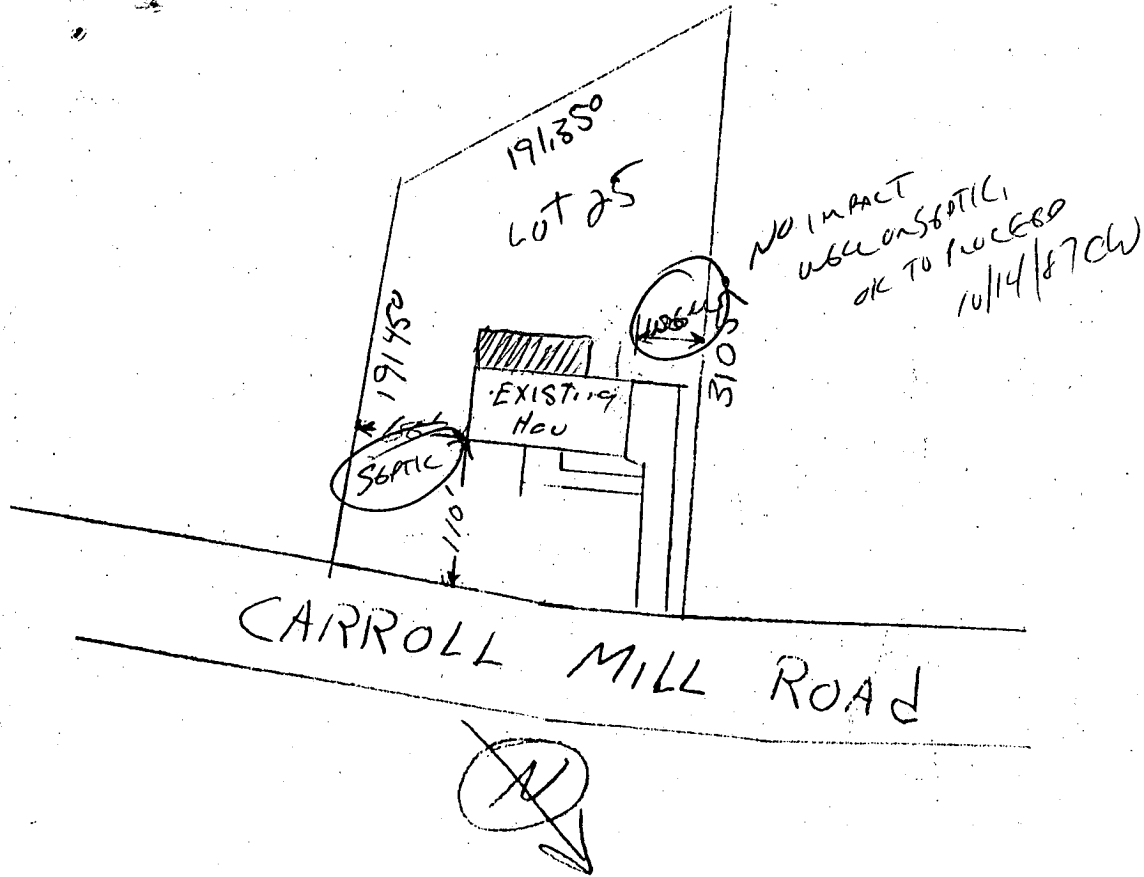 191.35°
LOT 25
NO IMPACT
WELL OR SEPTIC,
OK TO PROCEED
10/14/87 CW
WELL
191 45°
310
EXISTING
HOU
SEPTIC
110'
CARROLL MILL ROAd
N